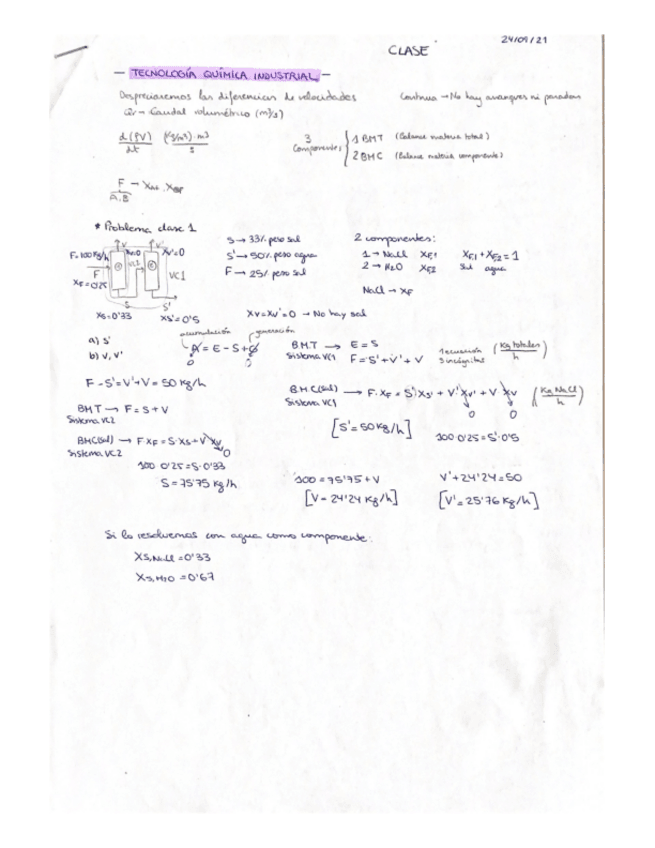 24/09/21
CLASE
- TECNOLOGÍA QUÍMICA INDUSTRIAL -
Despreciaremos las diferencias de velocidades
Continua → No hay arranques ni paradas
Qv → Caudal volumétrico (m³/s)
d(ρV)/dt (kg/m³)·m³/s
3 componentes
1 BMT (Balance materia total)
2 BMC (Balance materia componente)
F →
A,B
* Problema clase 1
F=100 kg/h
F
XF=0'25
V V'
Xv=0 Xv'=0
VC2
VC1
S S'
Xs=0'33 Xs'=0'5
S → 33% peso sal
S' → 50% peso agua
F → 25% peso sal
Xv=Xv'=0 → No hay sal
2 componentes:
1 → NaCl XF1
2 → H2O XF2
XF1+XF2=1
sal agua
NaCl → XF
a) S'
b) V, V'
acumulación generación
A = E - S + G
0 0
BMT → E = S
Sistema VC1 F = S' + V' + V
1 ecuación
3 incógnitas
(Kg totales/h)
F - S' = V' + V = 50 kg/h
BMC(sal) → F·XF = S'·Xs' + V'·Xv' + V·Xv (Kg NaCl/h)
Sistema VC1
0 0
[S' = 50 kg/h]
100·0'25 = S'·0'5
BMT → F = S + V
Sistema VC2
BMC(sal) → F·XF = S·Xs + V·Xv
Sistema VC2
0
100·0'25 = S·0'33
S = 75'75 kg/h
100 = 75'75 + V
[V = 24'24 kg/h]
V' + 24'24 = 50
[V' = 25'76 kg/h]
Si lo resolvemos con agua como componente:
Xs,NaCl = 0'33
Xs,H2O = 0'67